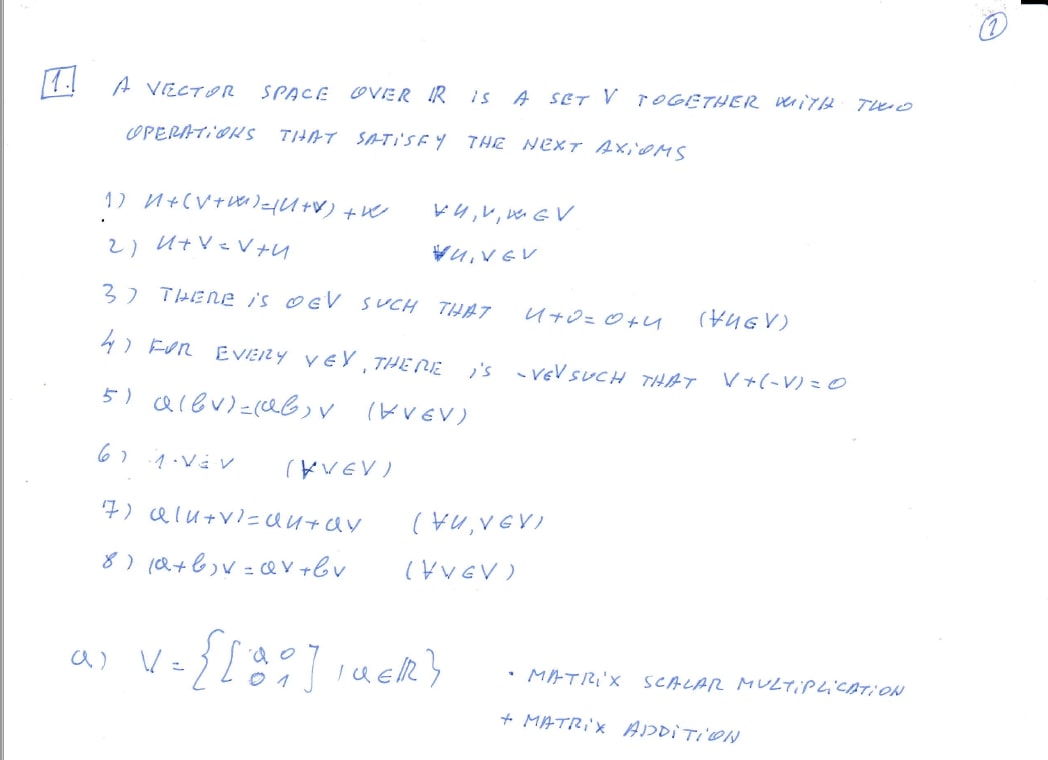 2
1. A VECTOR SPACE OVER ℝ IS A SET V TOGETHER WITH TWO
OPERATIONS THAT SATISFY THE NEXT AXIOMS
1) u+(v+w)=(u+v)+w ∀u,v,w∈V
2) u+v=v+u ∀u,v∈V
3) THERE IS 0∈V SUCH THAT u+0=0+u (∀u∈V)
4) FOR EVERY v∈V, THERE IS -v∈V SUCH THAT v+(-v)=0
5) a(bv)=(ab)v (∀v∈V)
6) 1·v=v (∀v∈V)
7) a(u+v)=au+av (∀u,v∈V)
8) (a+b)v=av+bv (∀v∈V)
a) V={[a 0
0 1] | a∈ℝ} · MATRIX SCALAR MULTIPLICATION
+ MATRIX ADDITION